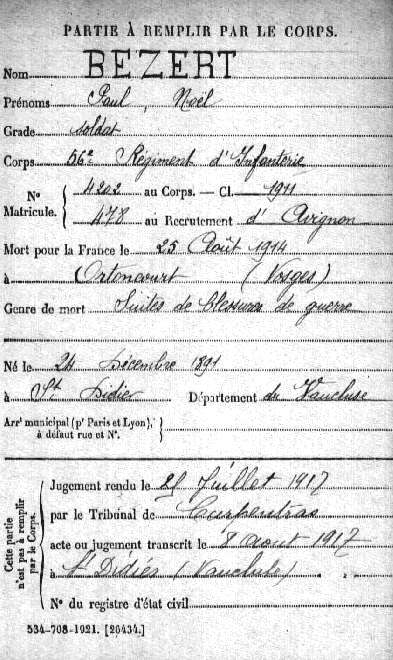 PARTIE À REMPLIR PAR LE CORPS.
Nom BEZERT
Prénoms Paul, Noël
Grade soldat
Corps 56e Régiment d'Infanterie
No Matricule. 4202 au Corps. — Cl. 1911
478 au Recrutement d'Avignon
Mort pour la France le 25 Août 1914
à Ortoncourt (Vosges)
Genre de mort Suites de blessures de guerre
Né le 24 Décembre 1891
à St Didier Département du Vaucluse
Arrt municipal (pr Paris et Lyon),
à défaut rue et No.
Cette partie n'est pas à remplir par le Corps.
Jugement rendu le Juillet 1917
par le Tribunal de Carpentras
acte ou jugement transcrit le 8 août 1917
à St Didier (Vaucluse)
No du registre d'état civil
534-708-1921. [26434.]